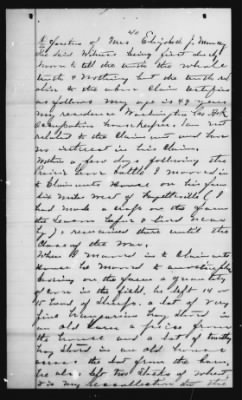 40
Question of Mrs Elizabeth J. Mooney
Said Witness being first duly
sworn to tell the truth the whole
truth & nothing but the truth re
lative to the above Claim testifies
as follows my age is 49 years
my residence Washington Co Ark
Occupation housekeeping am not
related to the Claimant and have
no interest in his Claim.
Within a few days following the
Prairie Grove battle I moved in
to Claimants House on his farm
Six miles West of Fayetteville (I
had made a crop on the farm
the Season before & lived near
by) & remained there until the
Close of the War.
When I moved in to Claimants
House he moved to
on the farm a quantity
of corn in the field, he left 14 or
15 head of Sheep. a lot of very
fine Hungarian hay stored in
an old barn a piece from
the house and a lot of timothy
hay stored in an old house
across the lot from the barn.
he also left two Stacks of Wheat
it is my recollection that the